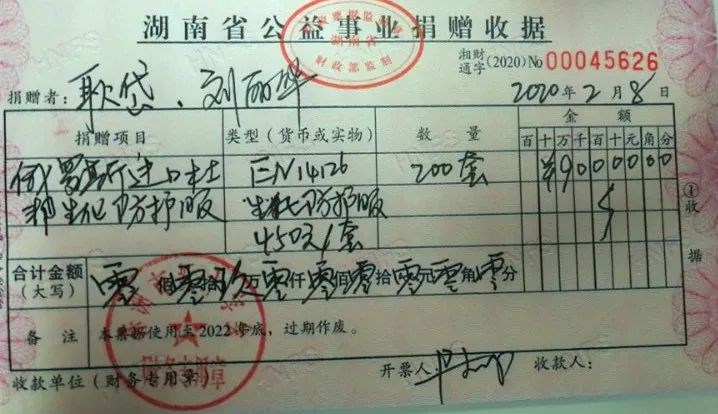 湖南省公益事业捐赠收据
湘财通字(2020) No 00045626
捐赠者: 耿岱、刘丽华 2020年2月8日
捐赠项目 类型(货币或实物) 数量 金额
百十万千百十元角分
俄罗斯进口杜 EN14126 200套 ¥9000000
邦生化防护服 生化防护服
450元/套
合计金额(大写) 零佰零拾玖万零仟零佰零拾零元零角零分
备注 本票据使用至2022年底,过期作废。
收款单位(财务专用章) 开票人: 收款人:
①收据
湖南省
财政部监制